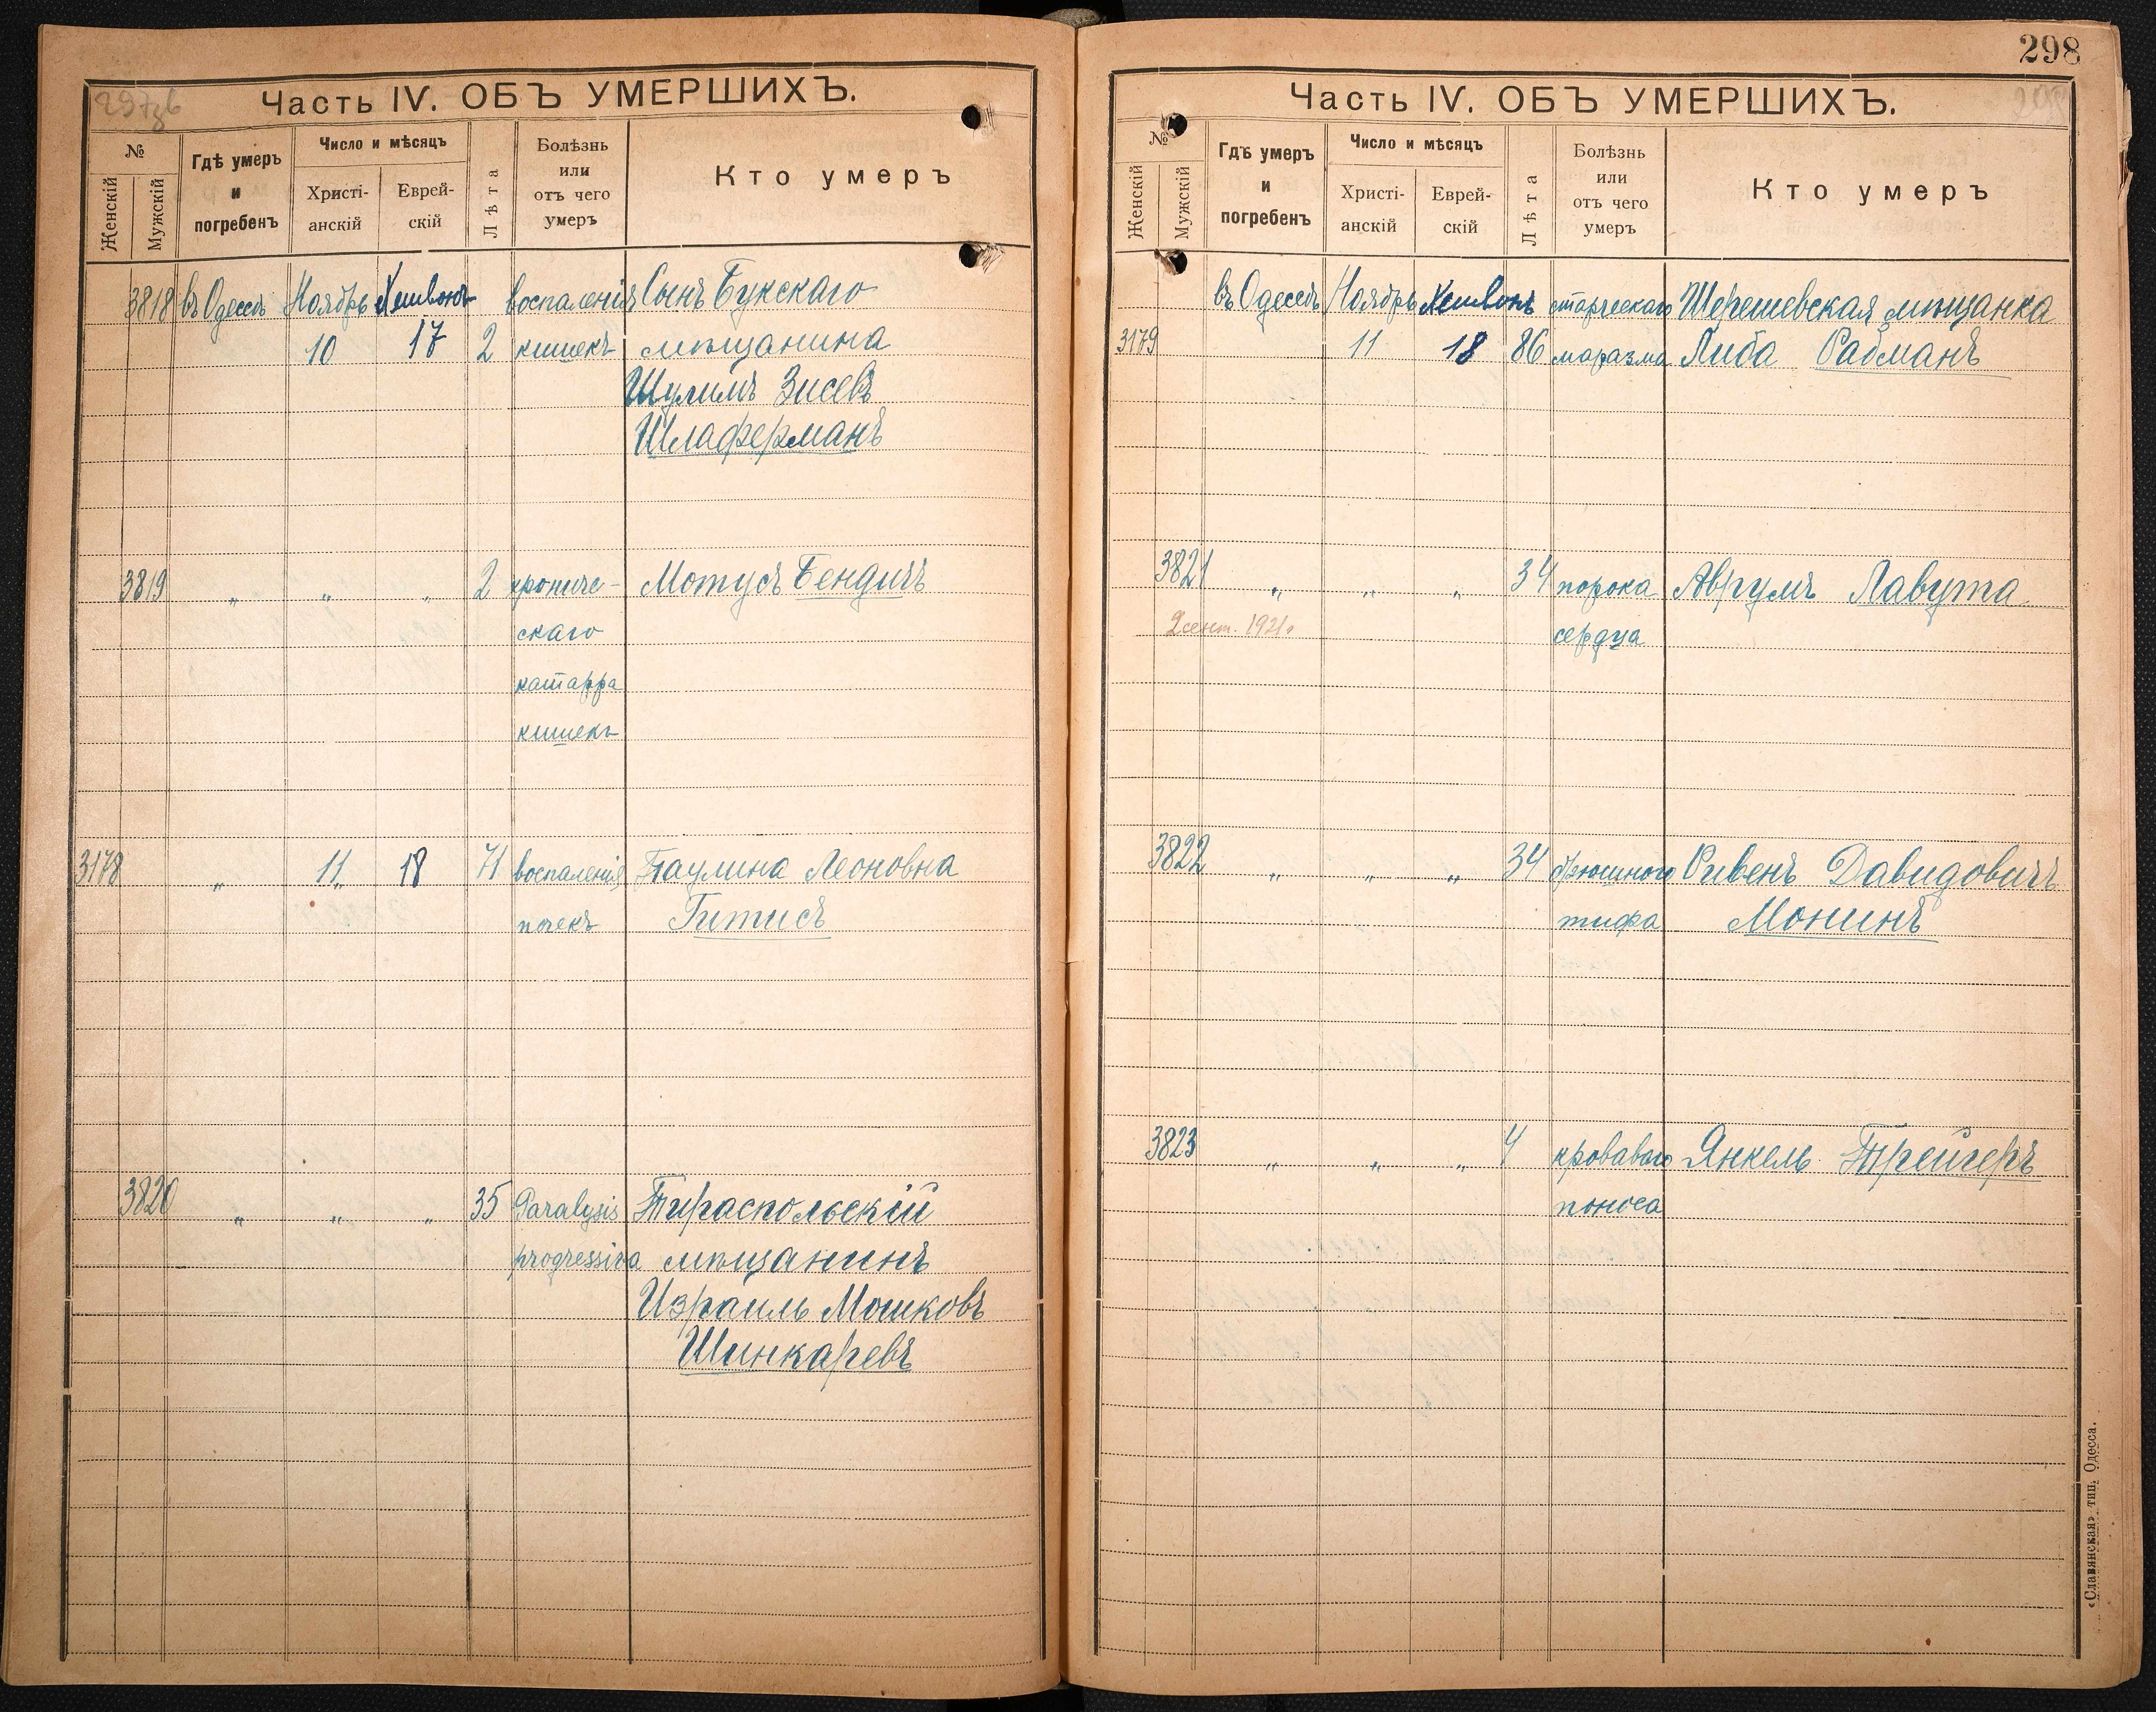 Часть IV. ОБЪ УМЕРШИХЪ.
№
Женскій
Мужскій
Гдѣ умеръ
и
погребенъ
Число и мѣсяцъ
Христі-
анскій
Еврей-
скій
Лѣта
Болѣзнь
или
отъ чего
умеръ
Кто умеръ
3818 въ Одессѣ Ноябрь Хешвонъ воспаленія Сынъ Букскаго
10 17 2 кишекъ мѣщанина
Шулимъ Зисевъ
Шлаферманъ
3819 " " " 2 хрониче- Мотусъ Бендитъ
скаго
катарра
кишекъ
3178 " 11 18 71 воспаленія Паулина Леоновна
почекъ Гитисъ
3820 " " " 35 Paralysis Тираспольскій
progressiva мѣщанинъ
Израиль Мошковъ
Шинкаревъ
298
Часть IV. ОБЪ УМЕРШИХЪ.
№
Женскій
Мужскій
Гдѣ умеръ
и
погребенъ
Число и мѣсяцъ
Христі-
анскій
Еврей-
скій
Лѣта
Болѣзнь
или
отъ чего
умеръ
Кто умеръ
въ Одессѣ Ноябрь Хешвонъ старческаго Шерешевская мѣщанка
3179 11 18 86 маразма Либа Рабманъ
3821 " " " 34 порока Аврумъ Лавута
2 сент. 1921 г. сердца
3822 " " " 34 брюшного Рывенъ Давидовичъ
тифа Монинъ
3823 " " " 4 кроваваго Янкель Трейгеръ
поноса
«Славянская» тип. Одесса.